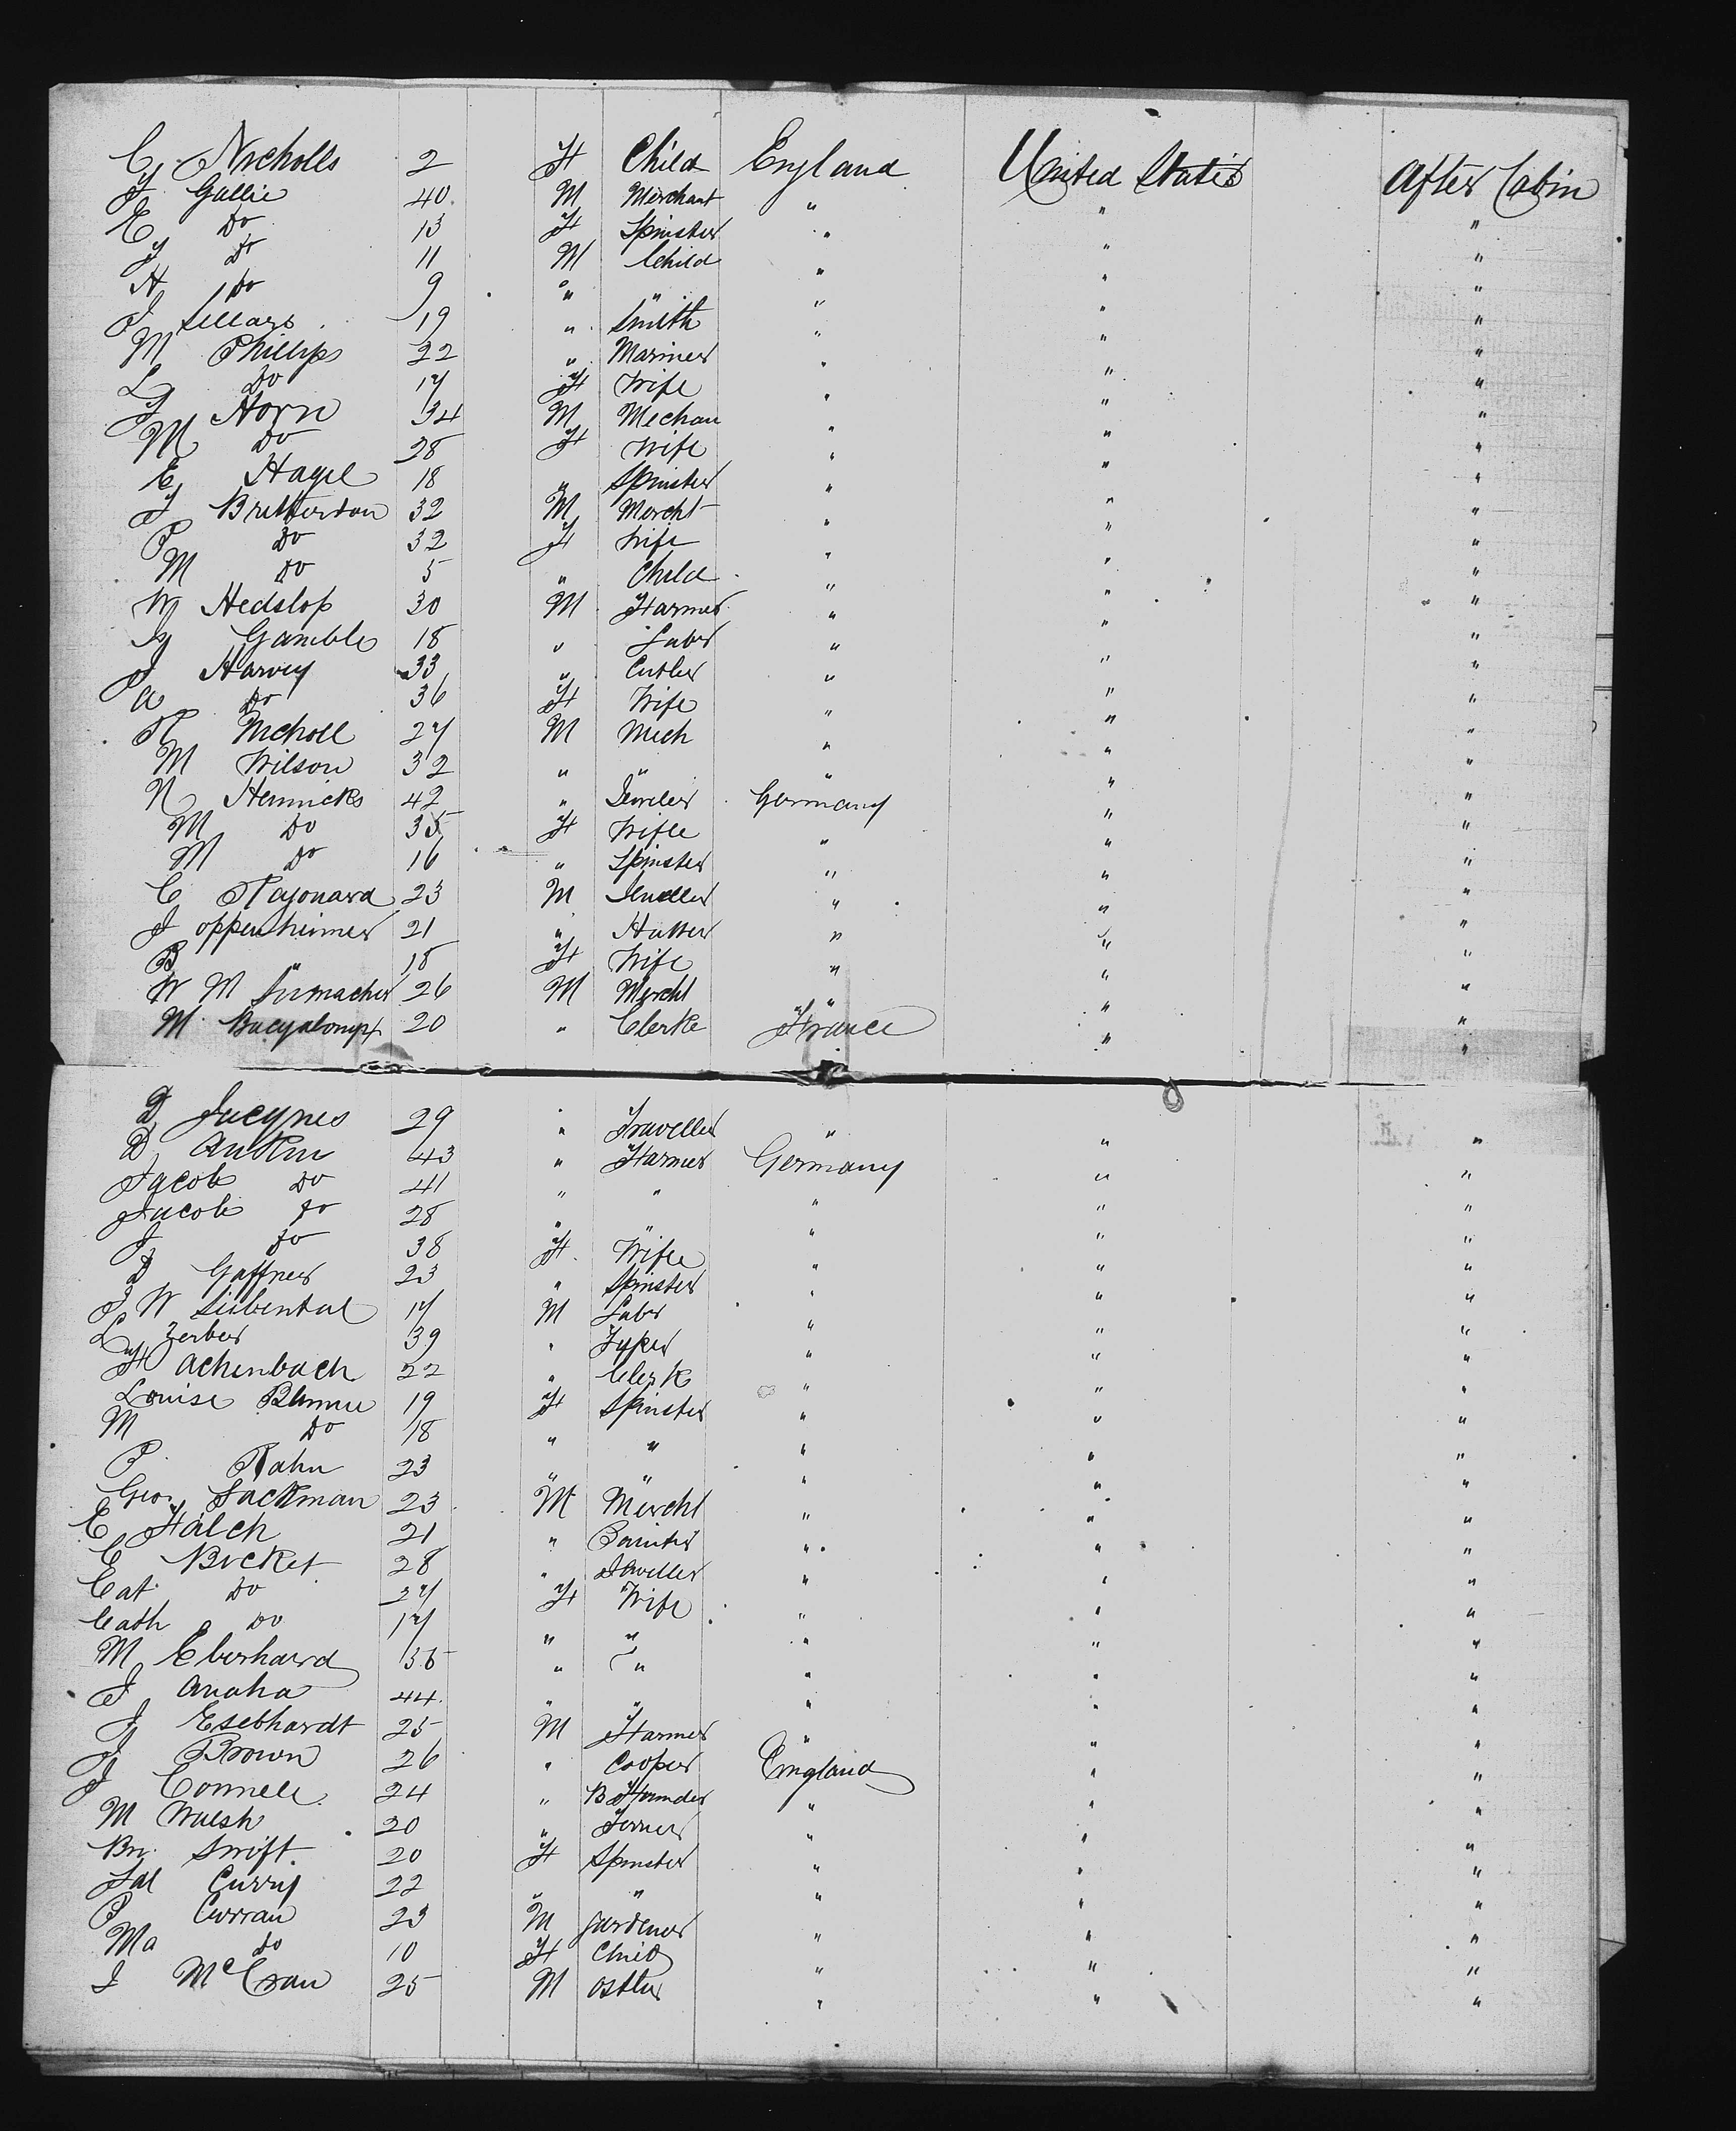 C Nicholls 2 F Child England United States After Cabin
J Gallie 40 M Merchant " " "
E Do 13 F Spinster " " "
J Do 11 M Child " " "
H Do 9 " " " " "
J Sellars 19 " Smith " " "
M Phillips 22 " Mariner " " "
L Do 17 F Wife " " "
J Horn 34 M Mechan " " "
M Do 28 F Wife " " "
E Hagel 18 " Spinster " " "
J Britterton 32 M Morcht " " "
P Do 32 F Wife " " "
M Do 5 " Child " " "
W Hedslop 30 M Farmer " " "
Gamble 18 " Labr " " "
J Harvey 33 " Cutler " " "
A Do 36 F Wife " " "
Nicholl 27 M Mech " " "
M Wilson 32 " " " " "
N Hennicks 42 " Jeweler Germany " "
M Do 35 F Wife " " "
M Do 16 " Spinster " " "
C 23 M Jeweller " " "
J Oppenheimer 21 " Hatter " " "
B " 18 F Wife " " "
W M 26 M Mercht " " "
M 20 " Clerke France " "
D Jucynes 29 " Traveller " " "
D 43 " Farmer Germany " "
Jacob Do 41 " " " " "
Jacob Do 28 " " " " "
J Do 38 F Wife " " "
D Gaffner 23 " Spinster " " "
J W Liebental 17 M Labr " " "
L Zerber 39 " Typer " " "
F Achenbach 22 " Clerk " " "
Louise Blumie 19 F Spinster " " "
M Do 18 " " " " "
P Rahn 23 " " " " "
Geo Sackman 23 M Mercht " " "
E Falch 21 " Painter " " "
C Bicket 28 " Jeweller " " "
Cat Do 27 F Wife " " "
Cath Do 17 " " " " "
M Eberhard 36 " " " " "
J Anaha 44 " " " " "
J Esebhardt 25 M Farmer " " "
J Brown 26 " Cooper England " "
J Connell 24 " B Founder " " "
M Walsh 20 " " " "
Br. Swift 20 F Spinster " " "
Sal Curry 22 " " " " "
P Curran 23 M Gardener " " "
Ma Do 10 F Child " " "
J McCran 25 M Ostler " " "